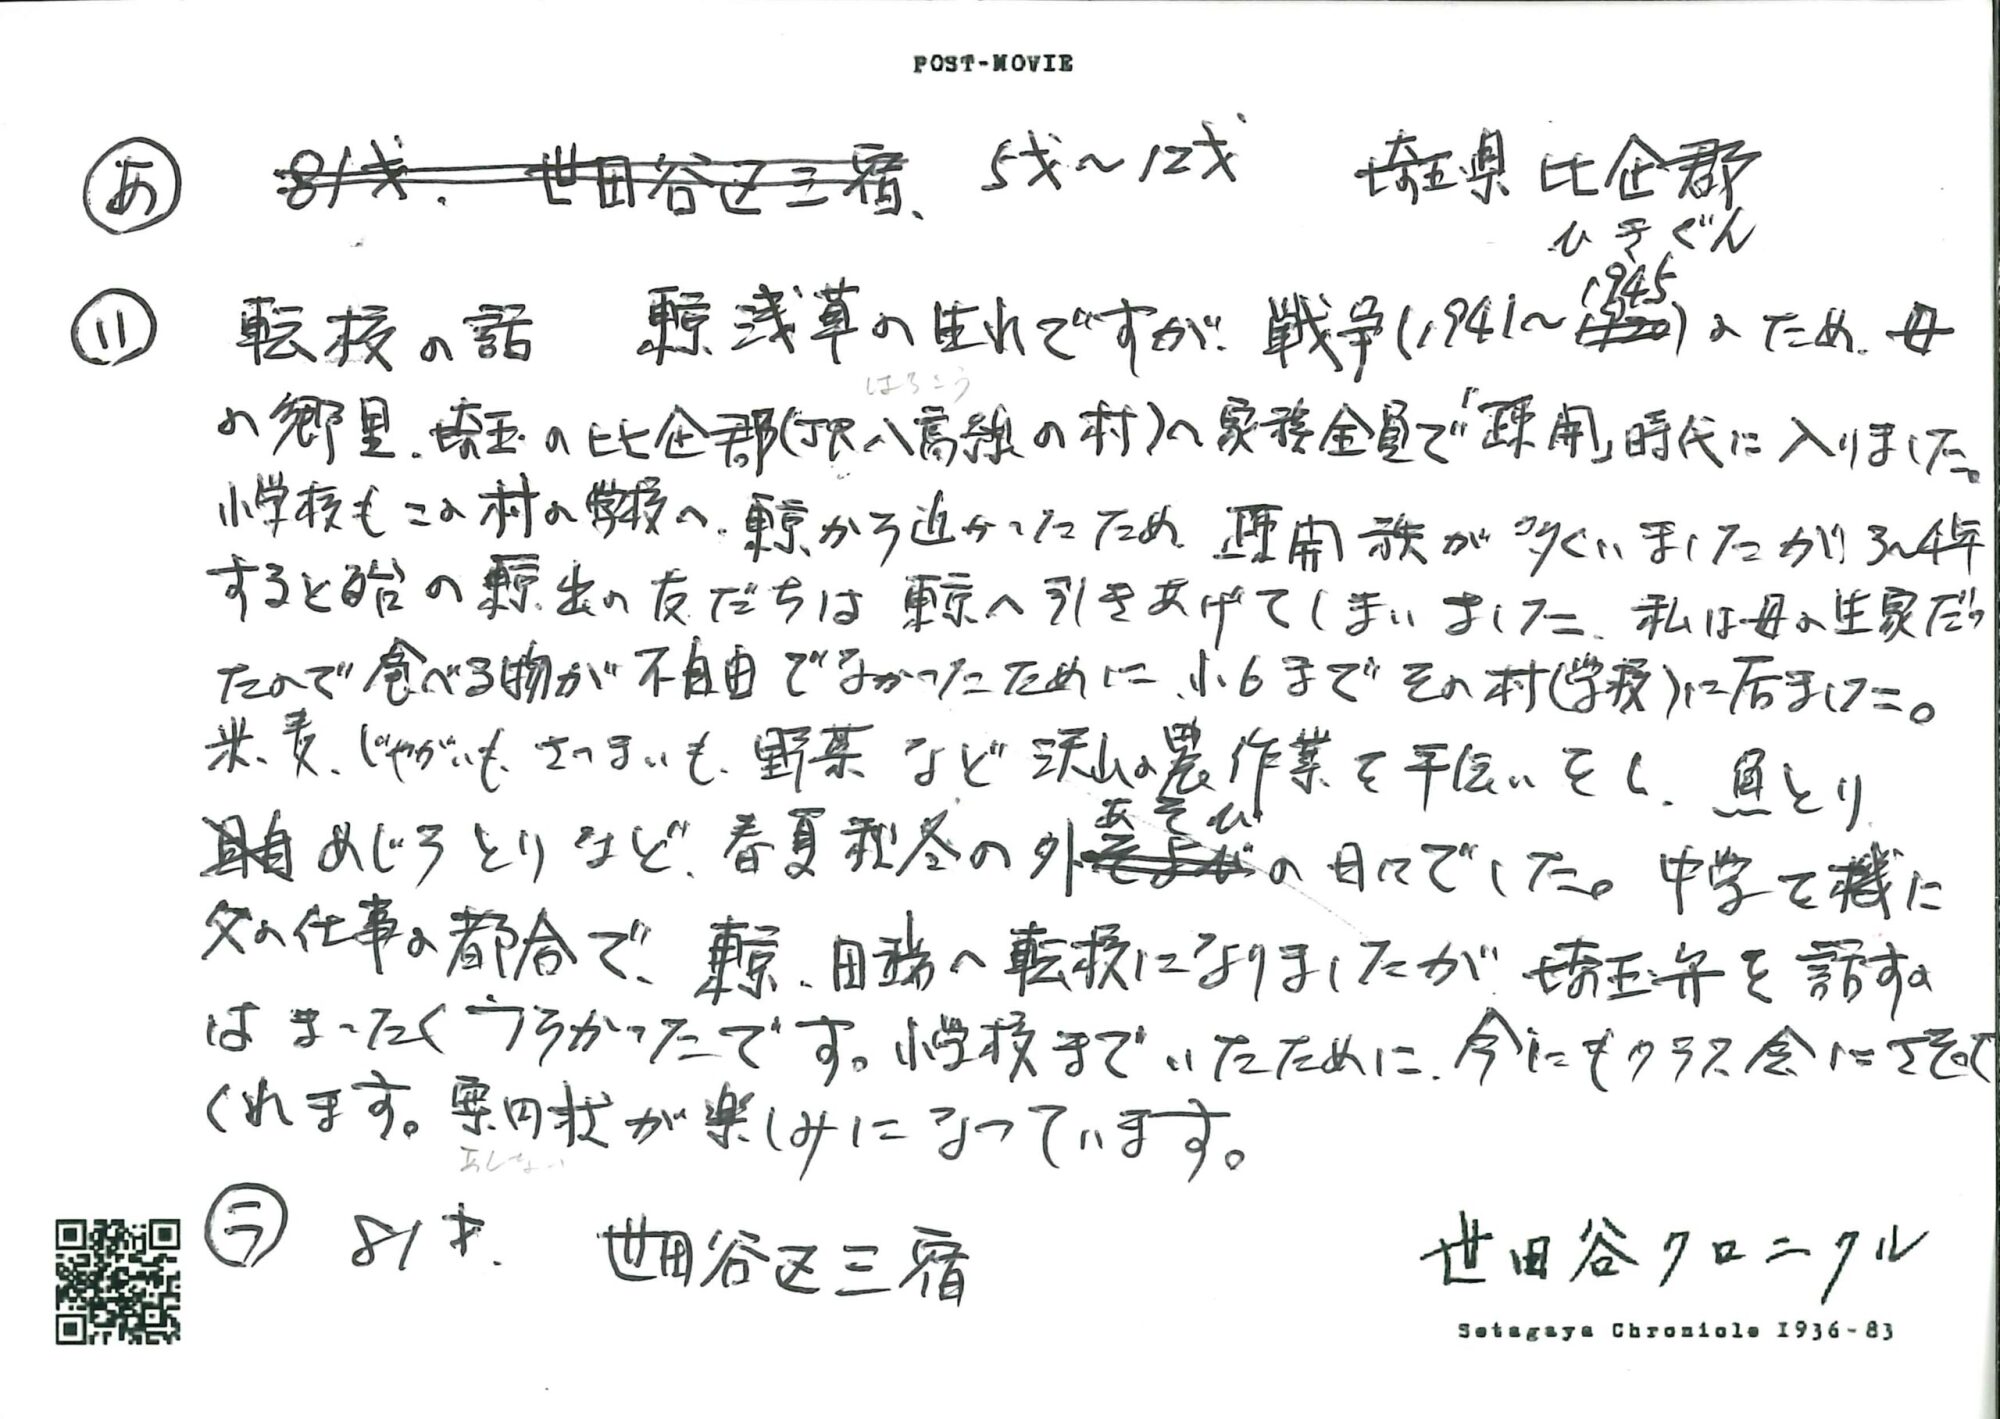 POST-MOVIE
あ 81才. 世田谷区三宿、 5才〜12才 埼玉県 比企郡
ひきぐん
1945
い 転校の話 東京浅草の生れですが、戦争(1941〜 )のため、母
はちこう
の郷里、埼玉の比企郡(JR八高線の村)へ家族全員で「疎開」時代に入りました。
小学校もこの村の学校へ、東京から近かったため、疎開族が多くいましたが、3〜4年
すると殆の東京出の友だちは東京へ引きあげてしまいました、私は母の生家だっ
たので食べる物が不自由でなかったために、小6までその村(学校)に居ました。
米、麦、じゃがいも、さつまいも、野菜など沢山の農作業を手伝いをし、魚とり
あそび
めじろとりなど、春夏秋冬の外 の日々でした。中学を機に
父の仕事の都合で、東京、田端へ転校になりましたが、埼玉弁を話すの
はまったくつらかったです。小学校までいたために、今にもクラス会にさそって
くれます。案内状が楽しみになっています。
あんない
う 81才. 世田谷区三宿
世田谷クロニクル
Setagaya Chronicle 1936-83